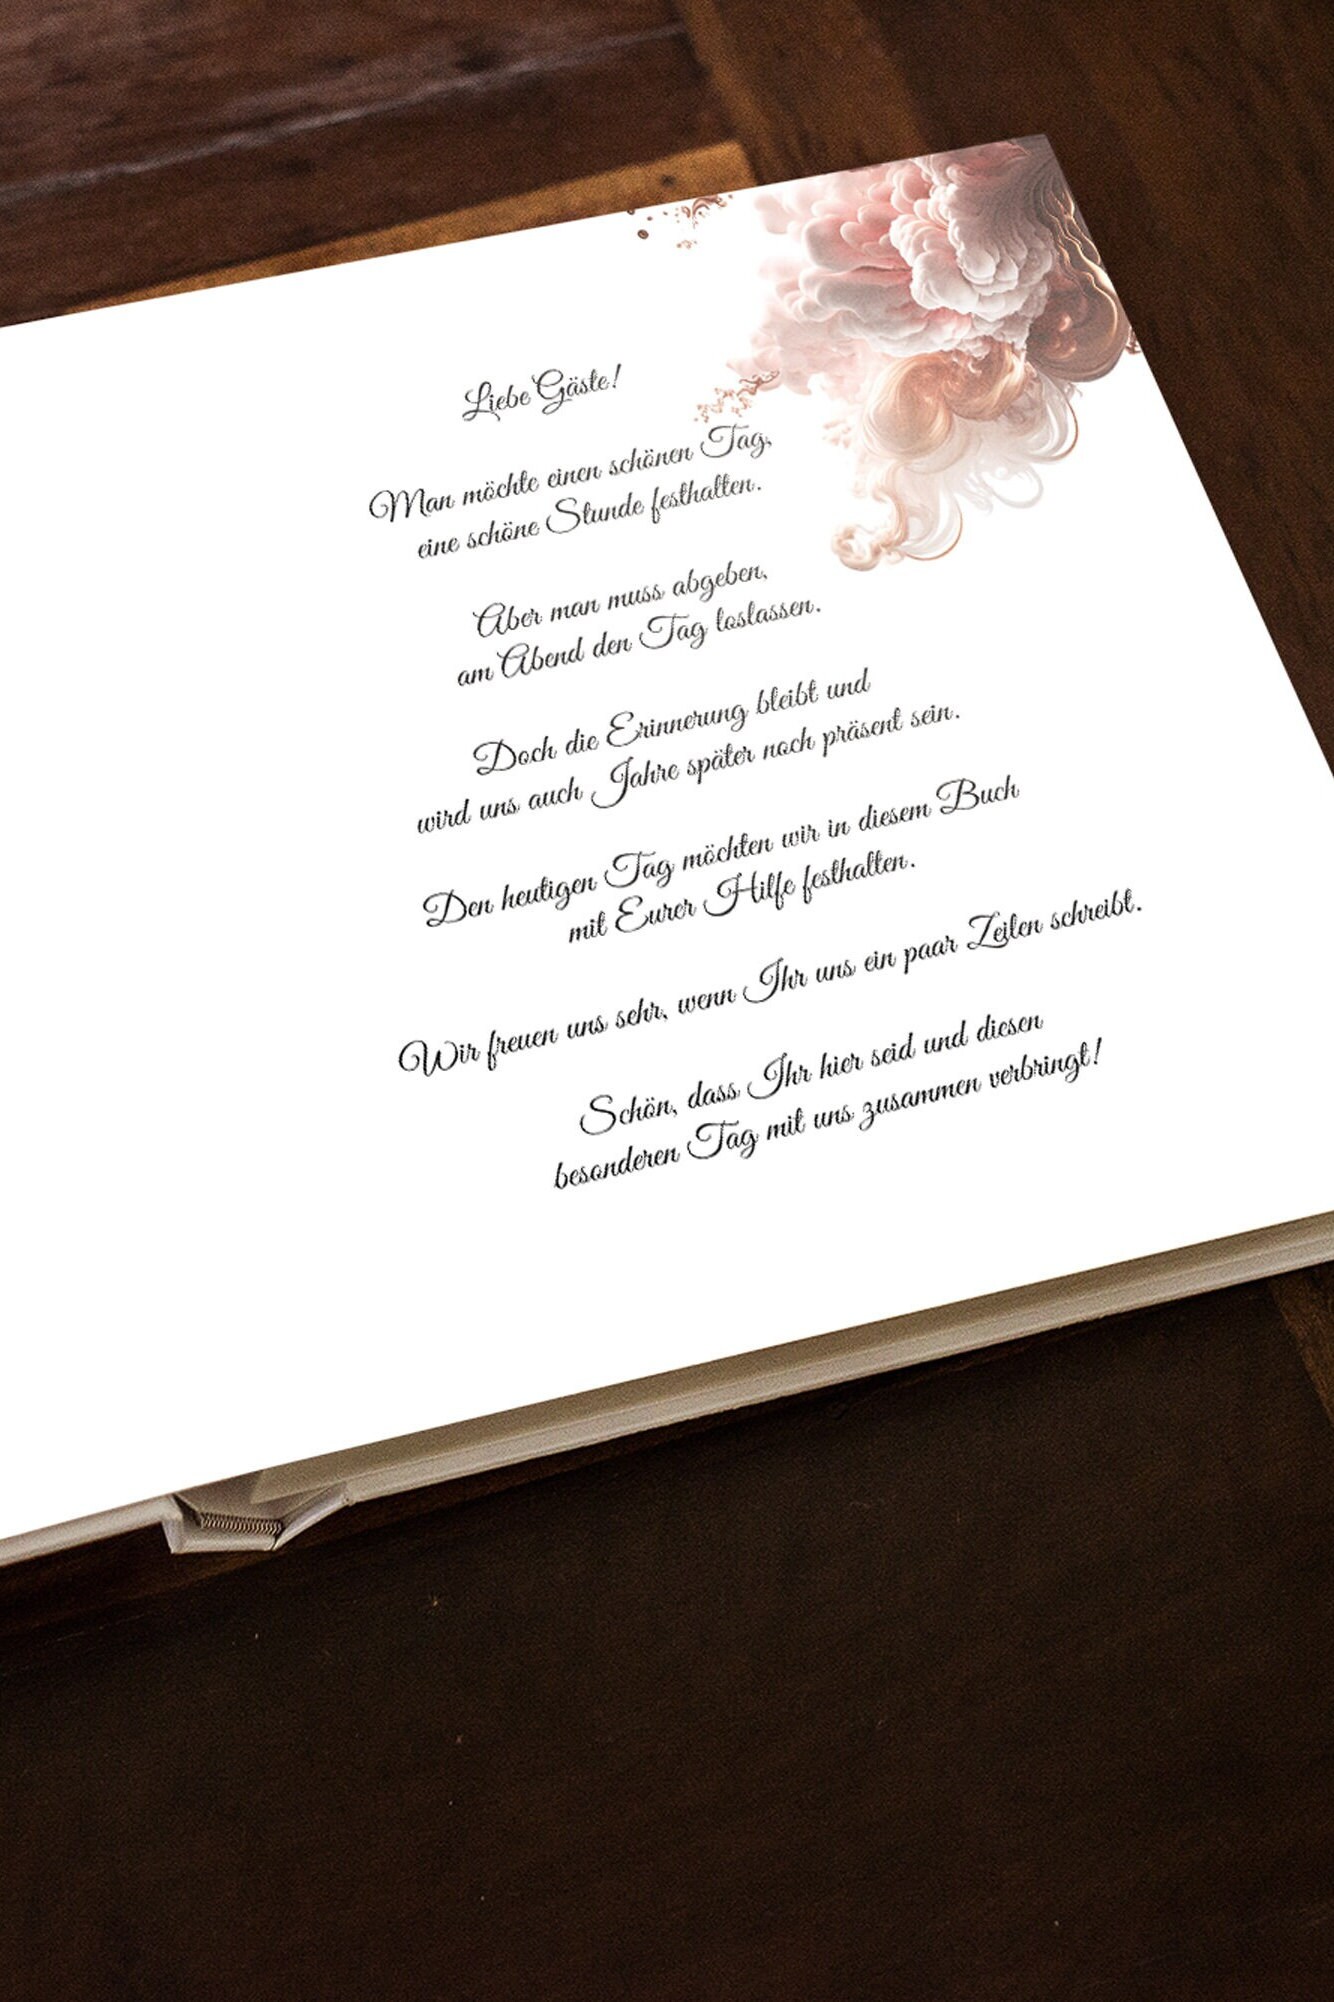 Liebe Gäste!
Man möchte einen schönen Tag,
eine schöne Stunde festhalten.
Aber man muss abgeben,
am Abend den Tag loslassen.
Doch die Erinnerung bleibt und
wird uns auch Jahre später noch präsent sein.
Den heutigen Tag möchten wir in diesem Buch
mit Eurer Hilfe festhalten.
Wir freuen uns sehr, wenn Ihr uns ein paar Zeilen schreibt.
Schön, dass Ihr hier seid und diesen
besonderen Tag mit uns zusammen verbringt!